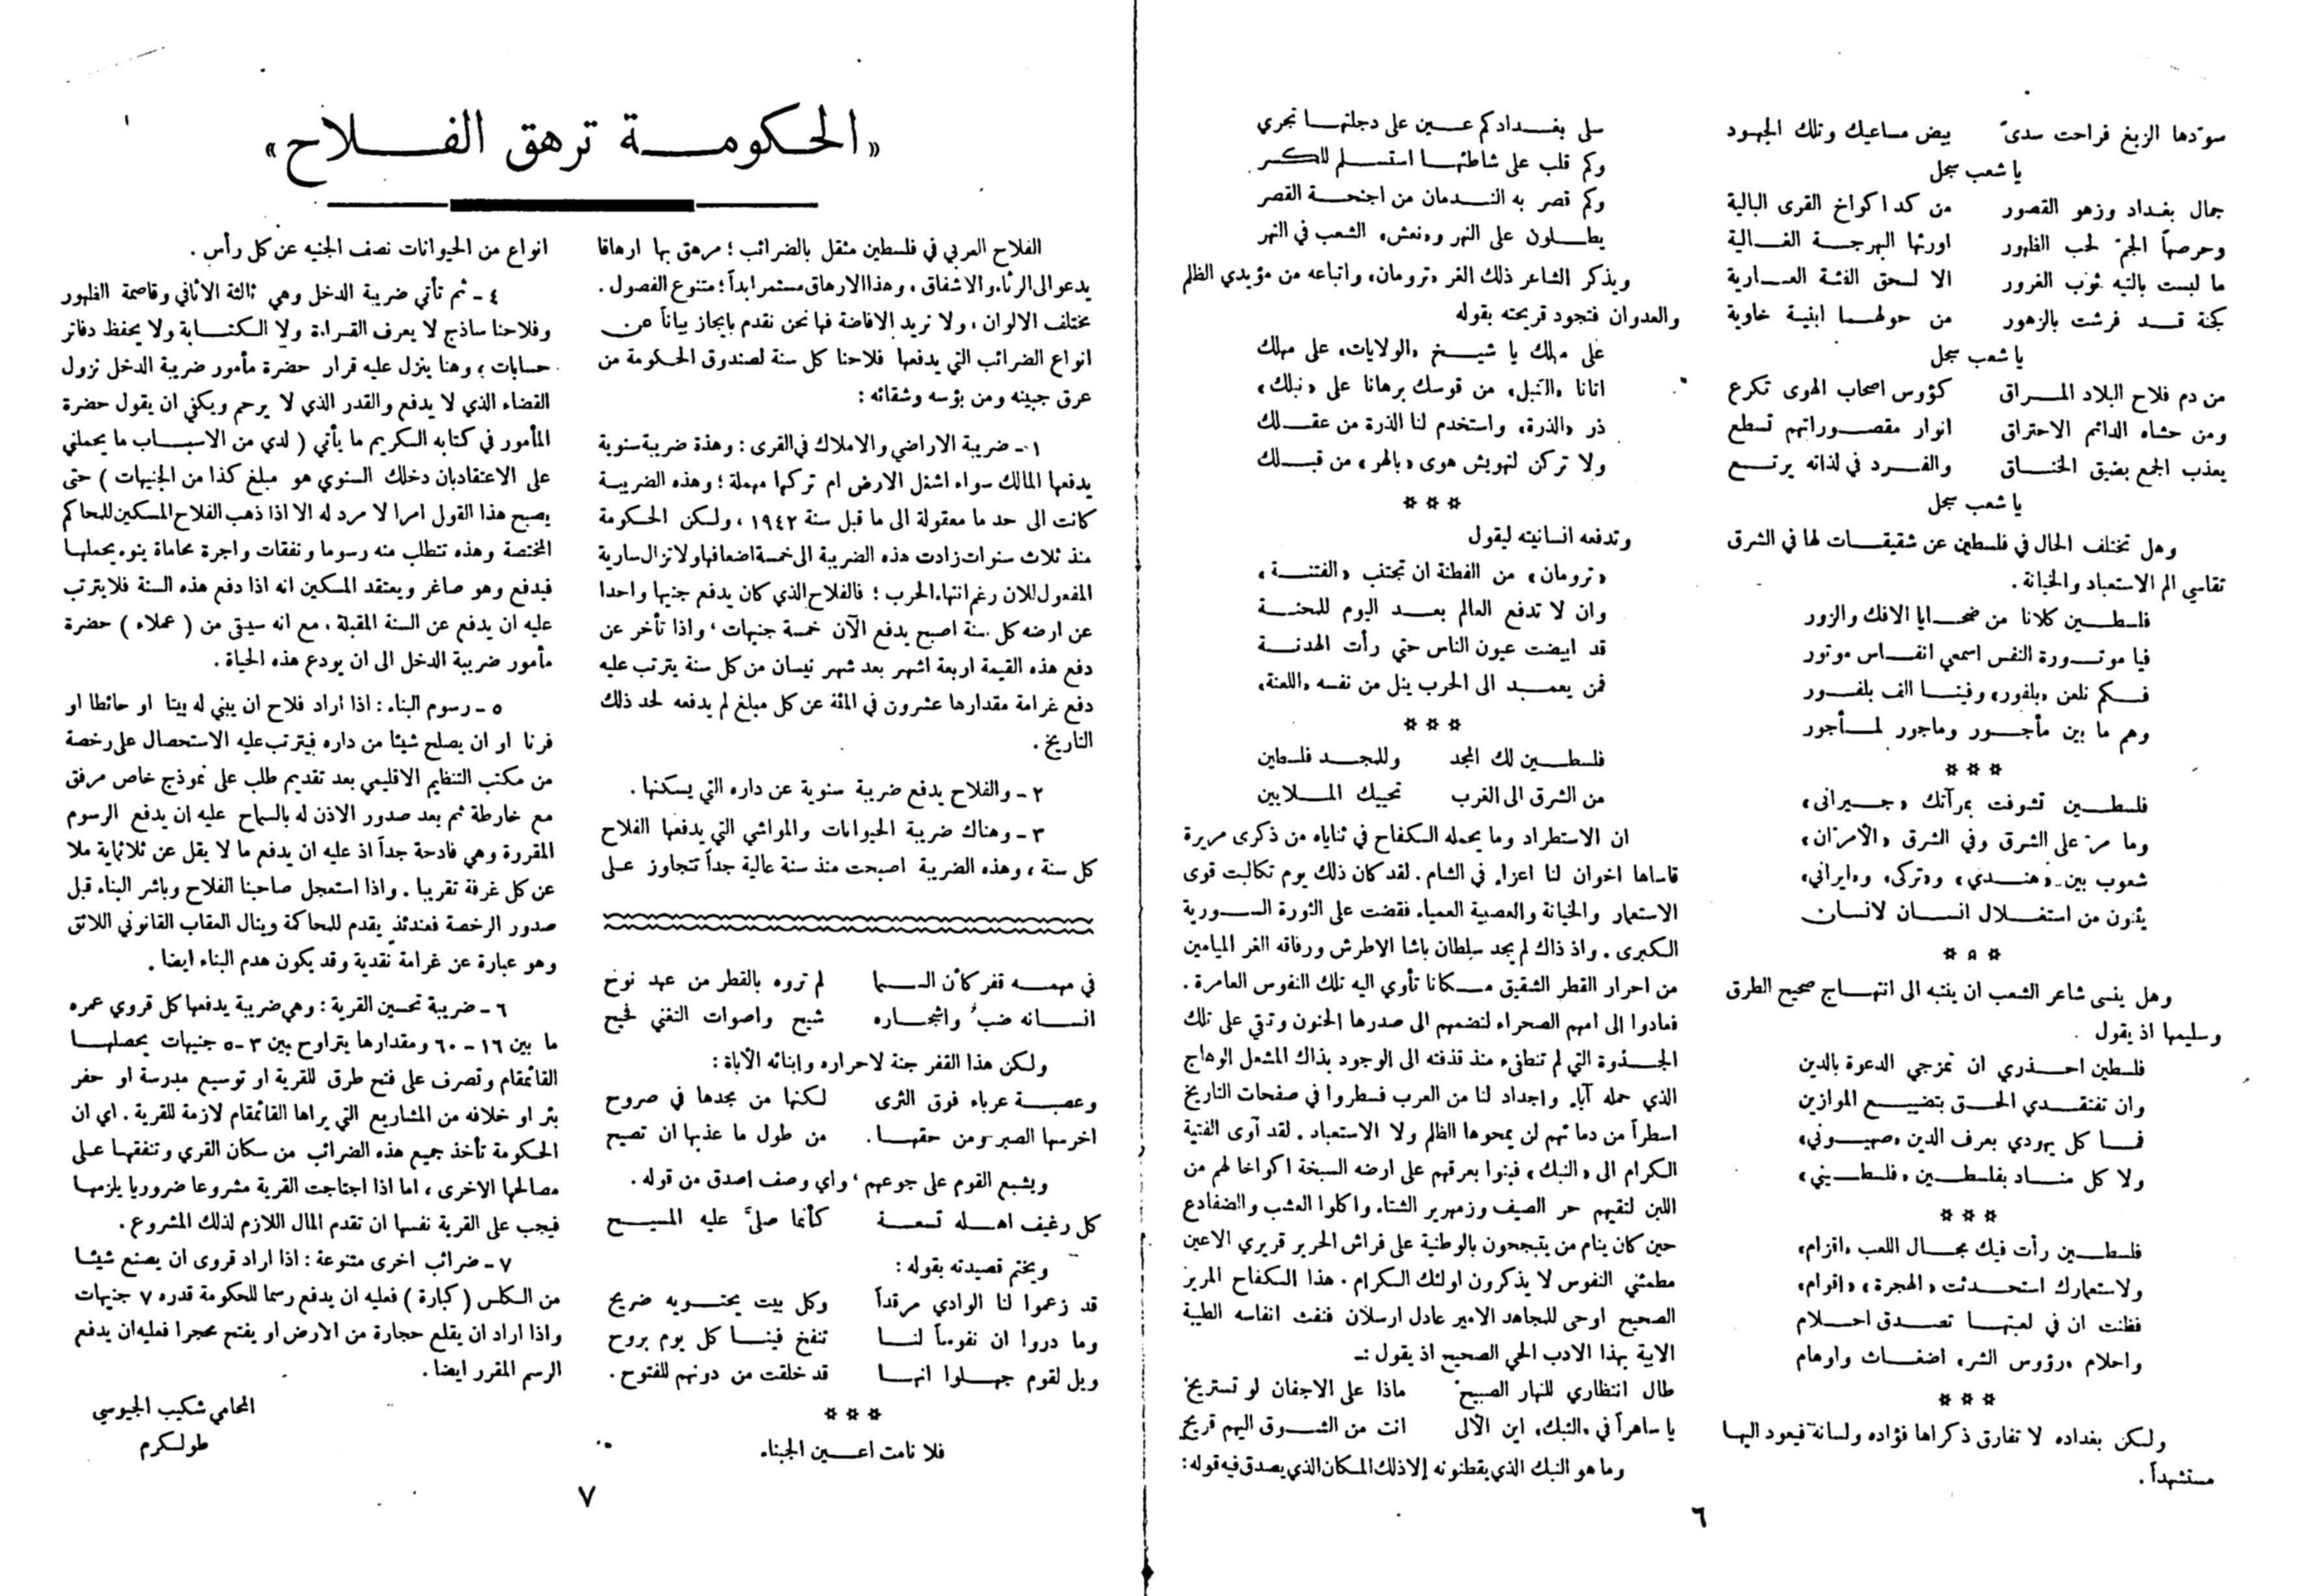 سوّدها الزيغ فراحت سدىً بيض مساعيك وتلك الجهود
يا شعب سجل
جمال بغداد وزهو القصور من كد اكواخ القرى البالية
وحرصها الجمّ لحب الظهور اورثها البهرجة الغالية
ما لبست بالتيه ثوب الغرور الا لسحق الفئة العارية
كجنة قد فرشت بالزهور من حولها ابنية خاوية
يا شعب سجل
من دم فلاح البلاد المراق كؤوس اصحاب الهوى تكرع
ومن حشاه الدائم الاحتراق انوار مقصوراتهم تسطع
يعذب الجمع بضيق الخناق والفرد في لذاته يرتع
يا شعب سجل
وهل تختلف الحال في فلسطين عن شقيقات لها في الشرق
تقاسي الم الاستعباد والخيانة .
فلسطين كلانا من ضحايا الافك والزور
فيا موتورة النفس اسمعي انفاس موتور
فكم نلعن «بلفور» وفينا الف بلفور
وهم ما بين مأجور وماجور لمأجور
***
فلسطين تشوفت بمرآتك «جيرانى»
وما مرّ على الشرق وفي الشرق «الأمرّان»
شعوب بين «هندي» و«تركى» و«ايراني»
يئنون من استغلال انسان لانسان
***
وهل ينسى شاعر الشعب ان ينتبه الى انتهاج صحيح الطرق
وسليمها اذ يقول .
فلسطين احذري ان تمزجي الدعوة بالدين
وان تفتقدي الحق بتضييع الموازين
فما كل يهودي بعرف الدين «صهيوني»
ولا كل مناد بفلسطين «فلسطيني»
***
فلسطين رأت فيك مجال اللعب «اقزام»
ولاستعمارك استحدثت «الهجرة» «اقوام»
فظنت ان في لعبتها تصدق احلام
واحلام «رؤوس الشر» اضغاث واوهام
***
ولكن بغداده لا تفارق ذكراها فؤاده ولسانه فيعود اليها
مستشهداً .
سلى بغداد كم عين على دجلتها تجري
وكم قلب على شاطئها استسلم للكسر
وكم قصر به الندمان من اجنحة القصر
يطلون على النهر و«نعش» الشعب في النهر
ويذكر الشاعر ذلك الغر «ترومان» واتباعه من مؤيدي الظلم
والعدوان فتجود قريحته بقوله
على مهلك يا شيخ «الولايات» على مهلك
اتانا «النبل» من قوسك برهانا على «نبلك»
ذر «الذرة» واستخدم لنا الذرة من عقلك
ولا تركن لتهويش هوى «بالهر» من قبلك
***
وتدفعه انسانيته ليقول
«ترومان» من الفطنة ان تجتنب «الفتنة»
وان لا تدفع العالم بعد اليوم للمحنة
قد ابيضت عيون الناس حتي رأت الهدنة
فمن يعمد الى الحرب ينل من نفسه «اللعنة»
***
فلسطين لك المجد وللمجد فلسطين
من الشرق الى الغرب تحييك الملايين
ان الاستطراد وما يحمله الكفاح في ثناياه من ذكرى مريرة
قاساها اخوان لنا اعزاء في الشام . لقد كان ذلك يوم تكالبت قوى
الاستعمار والخيانة والعصبية العمياء فقضت على الثورة السورية
الكبرى . واذ ذاك لم يجد سلطان باشا الاطرش ورفاقه الغر الميامين
من احرار القطر الشقيق مكانا تأوي اليه تلك النفوس العامرة .
فعادوا إلى امهم الصحراء لتضمهم الى صدرها الحنون وتقي على تلك
الجذوة التي لم تنطفيء منذ قذفته الى الوجود بذاك المشعل الوهاج
الذي حمله آباء واجداد لنا من العرب فسطروا في صفحات التاريخ
اسطراً من دمائهم لن يمحوها الظلم ولا الاستعباد . لقد آوى الفتية
الكرام الى «النبك» فبنوا بعرقهم على ارضه السبخة اكواخا لهم من
اللبن لتقيهم حر الصيف وزمهرير الشتاء واكلوا العشب والضفادع
حين كان ينام من يتبجحون بالوطنية على فراش الحرير قريري الاعين
مطمئني النفوس لا يذكرون اولئك الكرام . هذا الكفاح المرير
الصحيح اوحى للمجاهد الامير عادل ارسلان فنفث انفاسه الطيبة
الابية بهذا الادب الحي الصحيح اذ يقول :ـ
طال انتظاري للنهار الصبيح ماذا على الاجفان لو تستريح
يا ساهراً في «النبك» اين الألى انت من الشوق اليهم قريح
وما هو النبك الذي يقطنونه إلا ذلك المكان الذي يصدق فيه قوله :
٦
«الحكومة ترهق الفلاح»
الفلاح العربي في فلسطين مثقل بالضرائب ؛ مرهق بها ارهاقا
يدعو الى الرثاء والاشفاق ، وهذا الارهاق مستمر ابداً ؛ متنوع الفصول .
مختلف الالوان ، ولا نريد الافاضة فها نحن نقدم بايجاز بياناً عن
انواع الضرائب التي يدفعها فلاحنا كل سنة لصندوق الحكومة من
عرق جبينه ومن بؤسه وشقائه :
١ ـ ضريبة الاراضي والاملاك في القرى : وهذة ضريبة سنوية
يدفعها المالك سواء اشغل الارض ام تركها مهملة ؛ وهذه الضريبة
كانت الى حد ما معقولة الى ما قبل سنة ١٩٤٢ ، ولكن الحكومة
منذ ثلاث سنوات زادت هذه الضريبة الى خمسة اضعافها ولا تزال سارية
المفعول للان رغم انتهاء الحرب ؛ فالفلاح الذي كان يدفع جنيها واحدا
عن ارضه كل سنة اصبح يدفع الآن خمسة جنيهات ، واذا تأخر عن
دفع هذه القيمة اربعة اشهر بعد شهر نيسان من كل سنة يترتب عليه
دفع غرامة مقدارها عشرون في المئة عن كل مبلغ لم يدفعه لحد ذلك
التاريخ .
٢ ـ والفلاح يدفع ضريبة سنوية عن داره التي يسكنها .
٣ ـ وهناك ضريبة الحيوانات والمواشي التي يدفعها الفلاح
كل سنة ، وهذه الضريبة اصبحت منذ سنة عالية جداً تتجاوز على
انواع من الحيوانات نصف الجنيه عن كل رأس .
٤ ـ ثم تأتي ضريبة الدخل وهي ثالثة الاثافي وقاصمة الظهور
وفلاحنا ساذج لا يعرف القراءة ولا الكتابة ولا يحفظ دفاتر
حسابات ؛ وهنا ينزل عليه قرار حضرة مأمور ضريبة الدخل نزول
القضاء الذي لا يدفع والقدر الذي لا يرحم ويكفي ان يقول حضرة
المأمور في كتابه الكريم ما يأتي ( لدي من الاسباب ما يحملني
على الاعتقاد بان دخلك السنوي هو مبلغ كذا من الجنيهات ) حتى
يصبح هذا القول امرا لا مرد له الا اذا ذهب الفلاح المسكين للمحاكم
المختصة وهذه تتطلب منه رسوما ونفقات واجرة محاماة ينوء بحملها
فيدفع وهو صاغر ويعتقد المسكين انه اذا دفع هذه السنة فلا يترتب
عليه ان يدفع عن السنة المقبلة ، مع انه سيبقى من ( عملاء ) حضرة
مأمور ضريبة الدخل الى ان يودع هذه الحياة .
٥ ـ رسوم البناء : اذا اراد فلاح ان يبني له بيتا او حائطا او
فرنا او ان يصلح شيئا من داره فيترتب عليه الاستحصال على رخصة
من مكتب التنظيم الاقليمي بعد تقديم طلب على نموذج خاص مرفق
مع خارطة ثم بعد صدور الاذن له بالسماح عليه ان يدفع الرسوم
المقررة وهي فادحة جداً اذ عليه ان يدفع ما لا يقل عن ثلاثماية ملا
عن كل غرفة تقريبا . واذا استعجل صاحبنا الفلاح وباشر البناء قبل
صدور الرخصة فعندئذٍ يقدم للمحاكمة وينال العقاب القانوني اللائق
وهو عبارة عن غرامة نقدية وقد يكون هدم البناء ايضا .
٦ ـ ضريبة تحسين القرية : وهي ضريبة يدفعها كل قروي عمره
ما بين ١٦ ـ ٦٠ ومقدارها يتراوح بين ٣ـ٥ جنيهات يحصلها
القائمقام وتصرف على فتح طرق للقرية او توسيع مدرسة او حفر
بئر او خلافه من المشاريع التي يراها القائمقام لازمة للقرية . اي ان
الحكومة تأخذ جميع هذه الضرائب من سكان القري وتنفقها على
مصالحها الاخرى ، اما اذا اجتاجت القرية مشروعا ضروريا يلزمها
فيجب على القرية نفسها ان تقدم المال اللازم لذلك المشروع .
٧ ـ ضرائب اخرى متنوعة : اذا اراد قروى ان يصنع شيئا
من الكلس ( كبارة ) فعليه ان يدفع رسما للحكومة قدره ٧ جنيهات
واذا اراد ان يقلع حجارة من الارض او يفتح محجرا فعليه ان يدفع
الرسم المقرر ايضا .
المحامي شكيب الجيوسي
طولكرم
في مهمه قفر كأن السما لم تروه بالقطر من عهد نوح
انسانه ضبٌ واشجاره شيح واصوات التغني فحيح
ولكن هذا القفر جنة لاحراره وابنائه الأباة :
وعصبة عرباء فوق الثرى لكنها من مجدها في صروح
اخرسها الصبر ومن حقها . من طول ما عذبها ان تصيح
ويشبع القوم على جوعهم ، واي وصف اصدق من قوله .
كل رغيف اهله تسعة كأنما صلىَّ عليه المسيح
ويختم قصيدته بقوله :
قد زعموا لنا الوادي مرقداً وكل بيت يحتويه ضريح
وما دروا ان نفوساً لنا تنفخ فينا كل يوم بروح
ويل لقوم جهلوا انها قد خلقت من دونهم للفتوح .
***
فلا نامت اعين الجبناء
٧